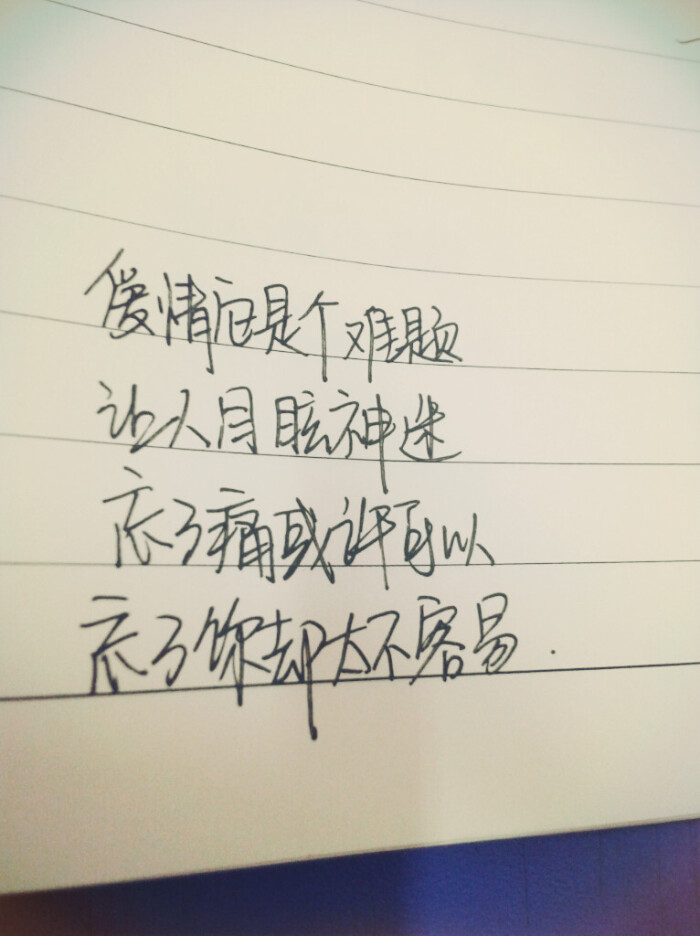 爱情它是个难题
让人目眩神迷
忘了痛或许可以
忘了你却太不容易.